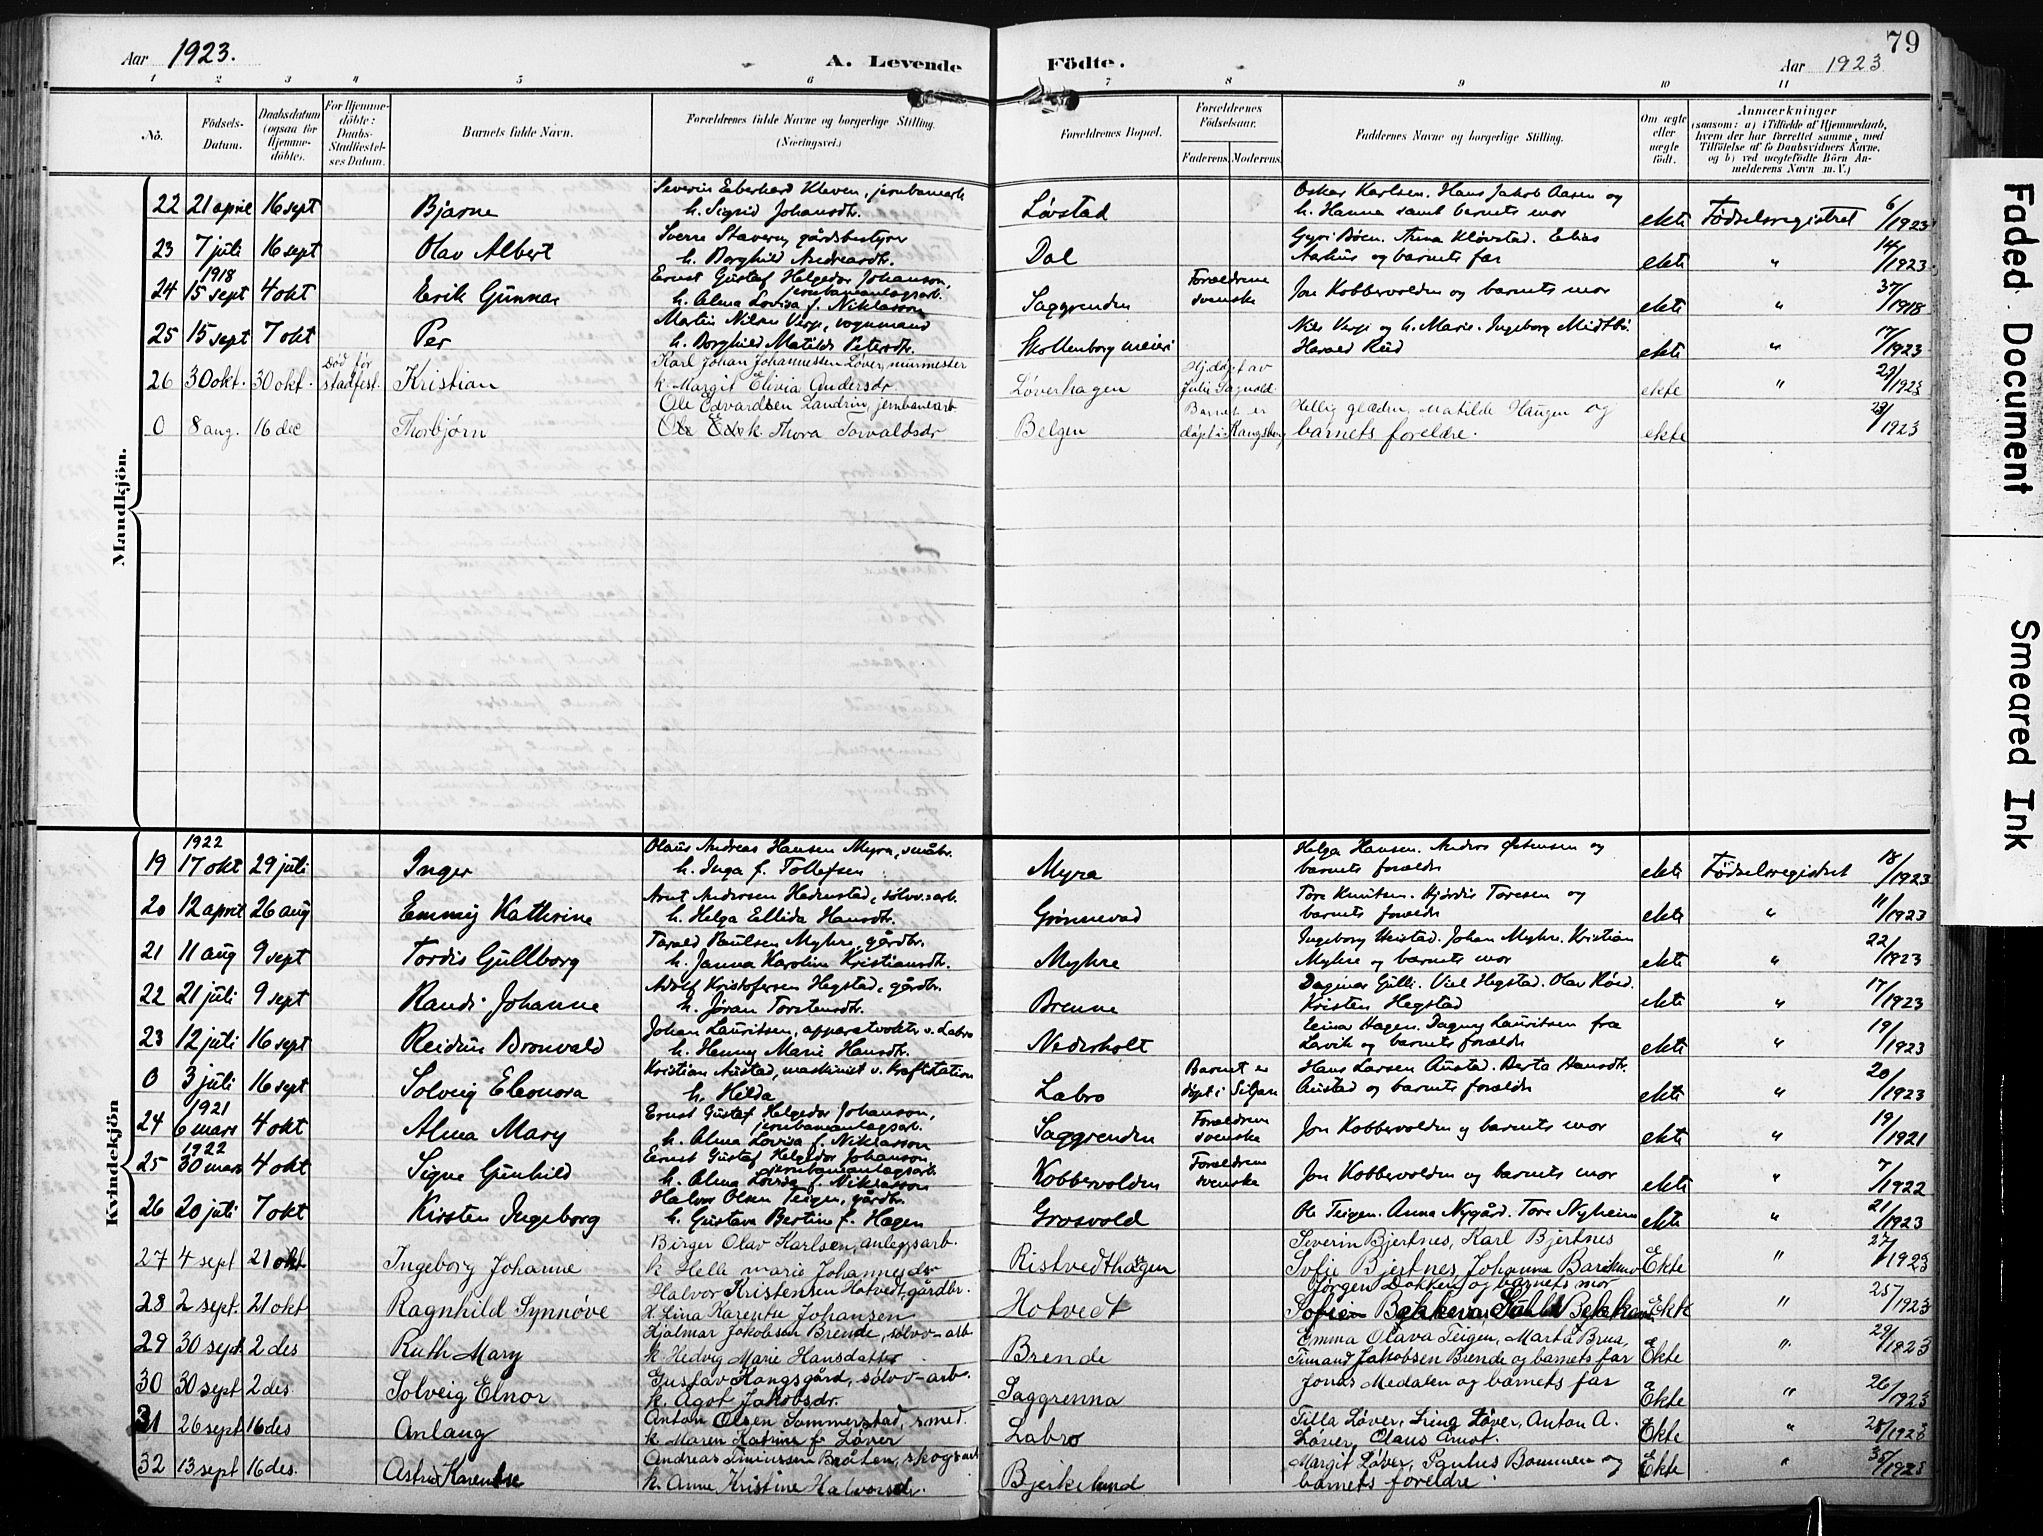 79
Aar 1923. A. Levende Födte. Aar 1923
1 2 3 4 5 6 7 8 9 10 11
No. Födsels-Datum. Daabsdatum (ogsaa for Hjemme-döbte). For Hjemme-döbte: Daabs-Stadfæstel-ses Datum. Barnets fulde Navn. Forældrenes fulde Navne og borgerlige Stilling. (Næringsvei.) Forældrenes Bopæl. Forældrenes Födselsaar. Faderens. Moderens. Faddernes Navne og borgerlige Stilling. Om ægte eller uægte födt. Anmærkninger (saasom: a) i Tilfælde af Hjemmedaab, hvem der har forrettet samme, med Tilföielse af to Daabsvidners Navne, og b) ved uægtefödte Börn An-melderens Navn m. V.)
Mandkjön.
Severin Eberhard Kleven, jernbanearb. Oskar Karlsen. Hans Jakob Aasen og
22 21 april 16 sept Bjarne h. Sigrid Johansdtr. Løvstad h. Hanna samt barnets mor ekte Födselsregistret 6/1923
Sverre Staverny gårdsbestyrer Gyri Böen. Anna Kløvstad. Elias
23 7 juli 16 sept Olav Albert h. Borghild Andreasdtr. Dal Aarhus og barnets far ekte " 14/1923
1918 Ernst Gustaf Helgedor Johanson, jernbaneanlagsarb. Forældrene
24 15 sept 4 okt Erik Gunnar h. Alma Lovisa f. Niklasson Saggrenden svenske Jon Kobbervolden og barnets mor ekte " 37/1918
Martin Nilsen Verp, vognmand Nils Verp og h. Marie. Ingeborg Midtbö.
25 15 sept 7 okt Per h. Borghild Matilde Petersdtr. Skollenborg meieri Harald Ruud ekte " 17/1923
Død før Karl Johan Johannessen Løver, murmester Hj.døpt av
26 30 okt. 30 okt. stadfest. Kristian k. Margit Olivia Andersdr Løverhagen Julie Sagvold ekte " 22/1923
Ole Edvardsen Landrin, jernbanearb Barnet er Hellig glædin, Matilde Haugen og
0 8 aug. 16 dec Thorbjørn k. Thora Torvaldsdr Belgen døpt i Kongsberg barnets foreldre. ekte 23/1923
Kvindekjön
1922 Olaus Andreas Hansen Myra, småbr. Helga Hansen. Anders Østensen og
19 17 okt 29 juli Inger h. Inga f. Tollefsen Myra barnets foreldr ekte Födselsregistret 18/1923
Arnt Andersen Hedenstad, sølvv.arb. Tore Knutsen. Hjördis Toresen og
20 12 april 26 aug Emmy Kathrine h. Helga Ellida Hansdtr. Grønnevad barnets foreldr ekte " 11/1923
Tarald Paulsen Myhre, gårdbr. Ingeborg Heistad. Johan Myhre. Kristian
21 11 aug 9 sept Tordis Gullborg h. Janna Karoline Kristiansdtr. Myhre Myhre og barnets mor ekte " 22/1923
Adolf Kristofersen Hegstad, gårdbr. Dagmar Gulli. Viel Hegstad. Olav Röed.
22 21 juli 9 sept Randi Johanne h. Jöran Torstensdtr. Brenne Kristen Hegstad ekte " 17/1923
Johan Lauritsen, apparatvokter v. Labro Einar Hagen. Dagny Lauritsen fra
23 12 juli 16 sept Reidun Bronvald h. Henny Marie Hansdtr. Nederholt Larvik og barnets foreldr ekte " 19/1923
Kristian Austad, maskinist v. Kraftstation Barnet er Hans Larsen Austad. Berta Hansdtr.
0 3 juli 16 sept Solveig Eleonora h. Hilda Labro døpt i Siljan Austad og barnets foreldr ekte " 20/1923
1921 Ernst Gustaf Helgedor Johanson, jernbaneanlagsarb. Forældrene
24 6 mars 4 okt Alma Mary h. Alma Lovisa f. Niklasson Saggrenden svenske Jon Kobbervolden og barnets mor ekte " 19/1921
1922 Ernst Gustaf Helgedor Johanson, jernbaneanlagsarb. Forældrene
25 30 mars 4 okt Signe Gunhild h. Alma Lovisa f. Niklasson Kobbervolden svenske Jon Kobbervolden og barnets mor ekte " 7/1922
Halvor Olsen Teigen, gårdbr.
26 20 juli 7 okt Kirsten Ingeborg h. Gustava Bertine f. Hagen Grosvold Ole Teigen. Anna Nygård. Tore Nyheim ekte " 21/1923
Birger Olav Karlsen, anlegsarb. Severin Bjertnes, Karl Bjertnes
27 4 sept 21 okt Ingeborg Johanne k Helle marie Johannesdr Ristvedthaugen Sofie Bjertnes, Johanna Ekte " 27/1923
Halvor Kristensen Hotvedt gårdbr. Jørgen Dokken og barnets mor
28 2 sept. 21 okt Ragnhild Synnøve K. Lina Karentse Johansen Hotvedt Sofien Bekkevar Bekkevar Ekte " 25/1923
Hjalmar Jakobsen Brende, sølvv-arb Emma Olava Teigen, Marta Brua,
29 30 sept. 2 des Ruth Mary k Hedvig Marie Hansdatter Brende Timand Jakobsen Brende og barnets far Ekte " 29/1923
Gustav Kongsgård, sølvv-arb. Jonas Medalen og barnets far
30 30 sept 2 des. Solveig Elnor k. Agot Jakobsdr. Saggrenna Ekte " 26/1923
Anton Olsen Sommerstad, smed. Tilla Løver, Løver, Anton A.
31 26 sept. 16 des Anlaug k. Maren Katrine f. Løver Labro Løver, Olaus Ekte " 28/1923
Andreas Bråten, skogsarb Margit Løver, Bommen og
32 13 sept 16 des. Astrid Karentse k. Anne Kristine Halvorsdr. Bjerkelund barnets foreldre Ekte " 35/1923
Faded Document
Smeared Ink